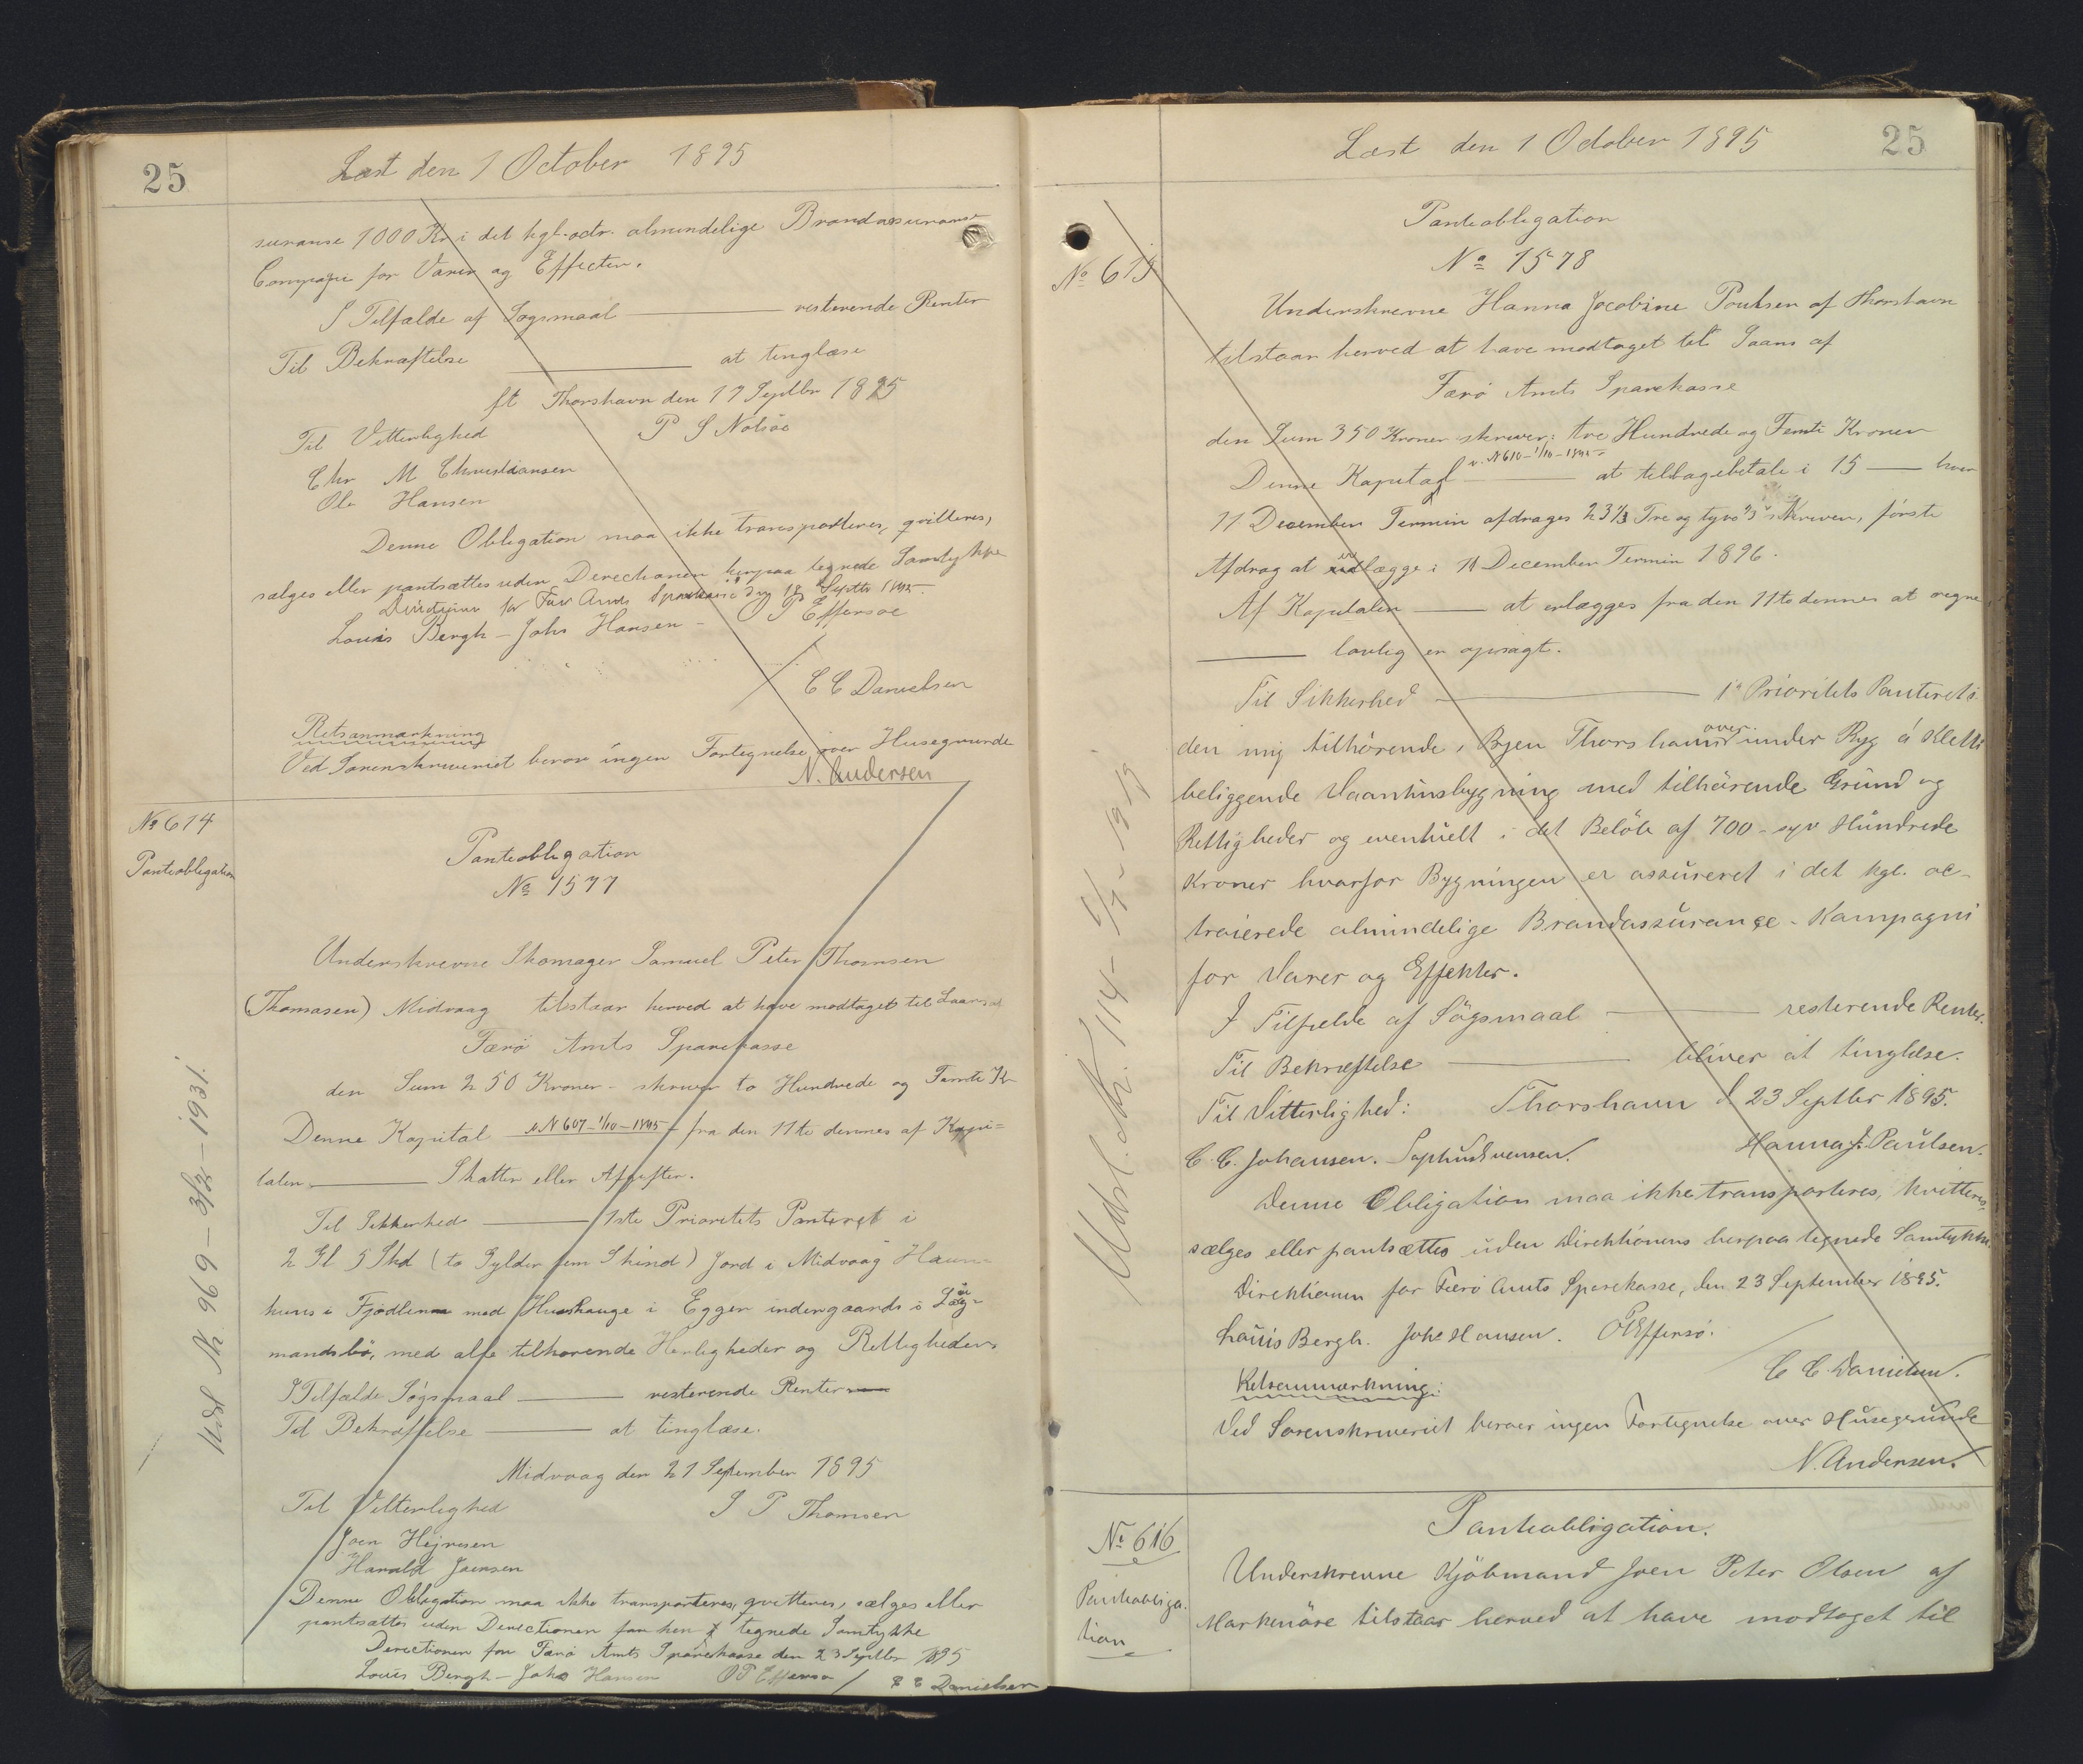 25
Læst den 1 October 1895
surance 1000 Kr i det kgl. octr. almindelige Brandassurance
Compagni for Varer og Effecter.
I Tilfælde af Søgsmaal — resterende Renter
Til Bekræftelse — at tinglæse
ft Thorshavn den 17 Septbr 1895
Til Vitterlighed P S Nolsøe
Chr M Christiansen
Ole Hansen
Denne Obligation maa ikke transporteres, qvitteres,
sælges eller pantsættes uden Directionen herpaa tegnede Samtykke
Directionen for Færø Amts Sparekasse den 18 Septbr 1895.
Louis Bergh - Johs Hansen - O P Effersøe
/ C C Danielsen
Retsanmærkning
Ved Sorenskriveriet beror ingen Fortegnelse over Husegrunde
N. Andersen
No 614
Panteobligation
Panteobligation
No 1577
Underskrevne Skomager Samuel Peter Thomsen
(Thomasen) Midvaag tilstaar herved at have modtaget til Laans af
Færø Amts Sparekasse
den Sum 250 Kroner - skriver to Hundrede og Femti Kr
Denne Kapital v. N 607 - 1/10 - 1895 - fra den 11te dennes af Kapi=
talen — Skatter eller Afgifter.
Til Sikkerhed — 1ste Prioritets Panteret i
2 Gl 5 Skd (to Gylden fem Skind) Jord i Midvaag
med Huushauge i Eggen indengaards i Låg=
mandsbø, med alle tilhørende Herligheder og Rettigheder.
I Tilfælde Søgsmaal — resterende Renter
Til Bekræftelse — at tinglæse.
Midvaag den 21 September 1895
Til Vitterlighed S P Thomsen
Joen Hejnesen
Harald Joensen
Denne Obligation maa ikke transporteres, qvitteres, sælges eller
pantsættes uden Directionen tegnede Samtykke
Directionen for Færø Amts Sparekasse den 23 Septbr 1895
Louis Bergh - Johs Hansen OP Effersøe / C C Danielsen
Udsl. Nr. 969 - 3/2 - 1931.
25
Læst den 1 October 1895
No 615
Panteobligation
No 1578
Underskrevne Hanna Jacobine Poulsen af Thorshavn
tilstaar herved at have modtaget til Laans af
Færø Amts Sparekasse
den Sum 350 Kroner skriver: tre Hundrede og Femti Kroner
Denne Kapital v. N 610 - 1/10 - 1895 - at tilbagebetale i 15 — hver
11 December Termin afdrages 23 1/3 Tre og tyve 1/3 Kroner, første
Afdrag at erlægge i 11 December Termin 1896.
Af Kapitalen — at erlægges fra den 11te dennes at regne,
— lovlig er opsagt.
Til Sikkerhed — 1ste Prioritets Panteret i
den mig tilhørende, i Byen Thorshavn over under Ryg á Kletti
beliggende Vaaninsbygning med tilhörende Grund og
Rettigheder og eventuelt i det Belöb af 700 - syv Hundrede
Kroner hvorfor Bygningen er assureret i det kgl. oc-
troierede almindelige Brandassurance-Kompagni
for Varer og Effekter.
I Tilfælde af Sögsmaal — resterende Renter.
Til Bekræftelse — bliver at tinglæse.
Til Vitterlighed: Thorshavn d 23 Septbr 1895.
C. C. Johansen. Sophus Svensen. Hanna J. Paulsen.
Denne Obligation maa ikke transporteres, kvitteres,
sælges eller pantsættes uden Direktionens herpaa tegnede Samtykke.
Direktionen for Færø Amts Sparekasse, den 23 September 1895.
Louis Bergh. Johs Hansen. OPEffersö.
/ C C. Danielsen.
Retsanmærkning:
Ved Sorenskriveriet beroer ingen Fortegnelse over Husegrunde
N. Andersen.
Udsl. Nr. 114 - 1919
No 616
Panteobliga-
tion
Panteobligation.
Underskrevne Kjöbmand Joen Peter Olsen af
Harkenöre tilstaar herved at have modtaget til